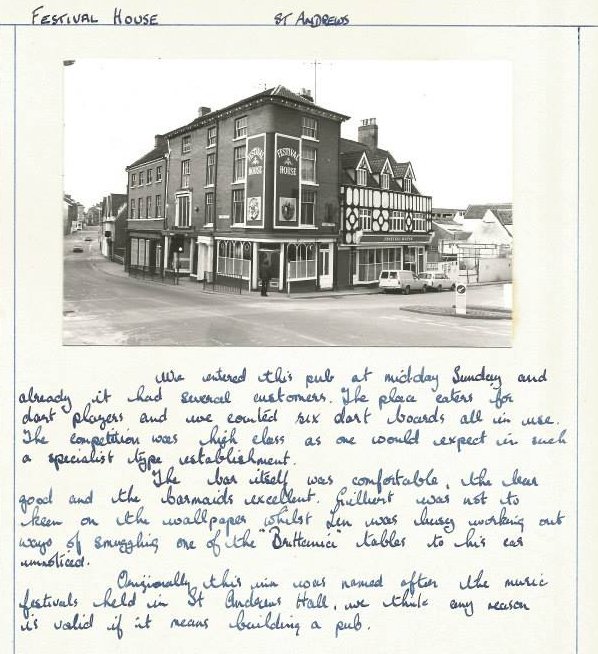 FESTIVAL HOUSE ST ANDREWS
FESTIVAL HOUSE
FESTIVAL HOUSE
FESTIVAL HOUSE
We entered this pub at midday Sunday and
already it had several customers. The place caters for
dart players and we counted six dart boards all in use.
The competition was high class as one would expect in such
a specialist type establishment.
The bar itself was comfortable, the beer
good and the barmaids excellent. Gilbert was not to
keen on the wallpaper whilst Len was busy working out
ways of smuggling one of the "Brittania" tables to his car
unnoticed.
Originally this inn was named after the music
festivals held in St Andrews Hall, we think any reason
is valid if it means building a pub.